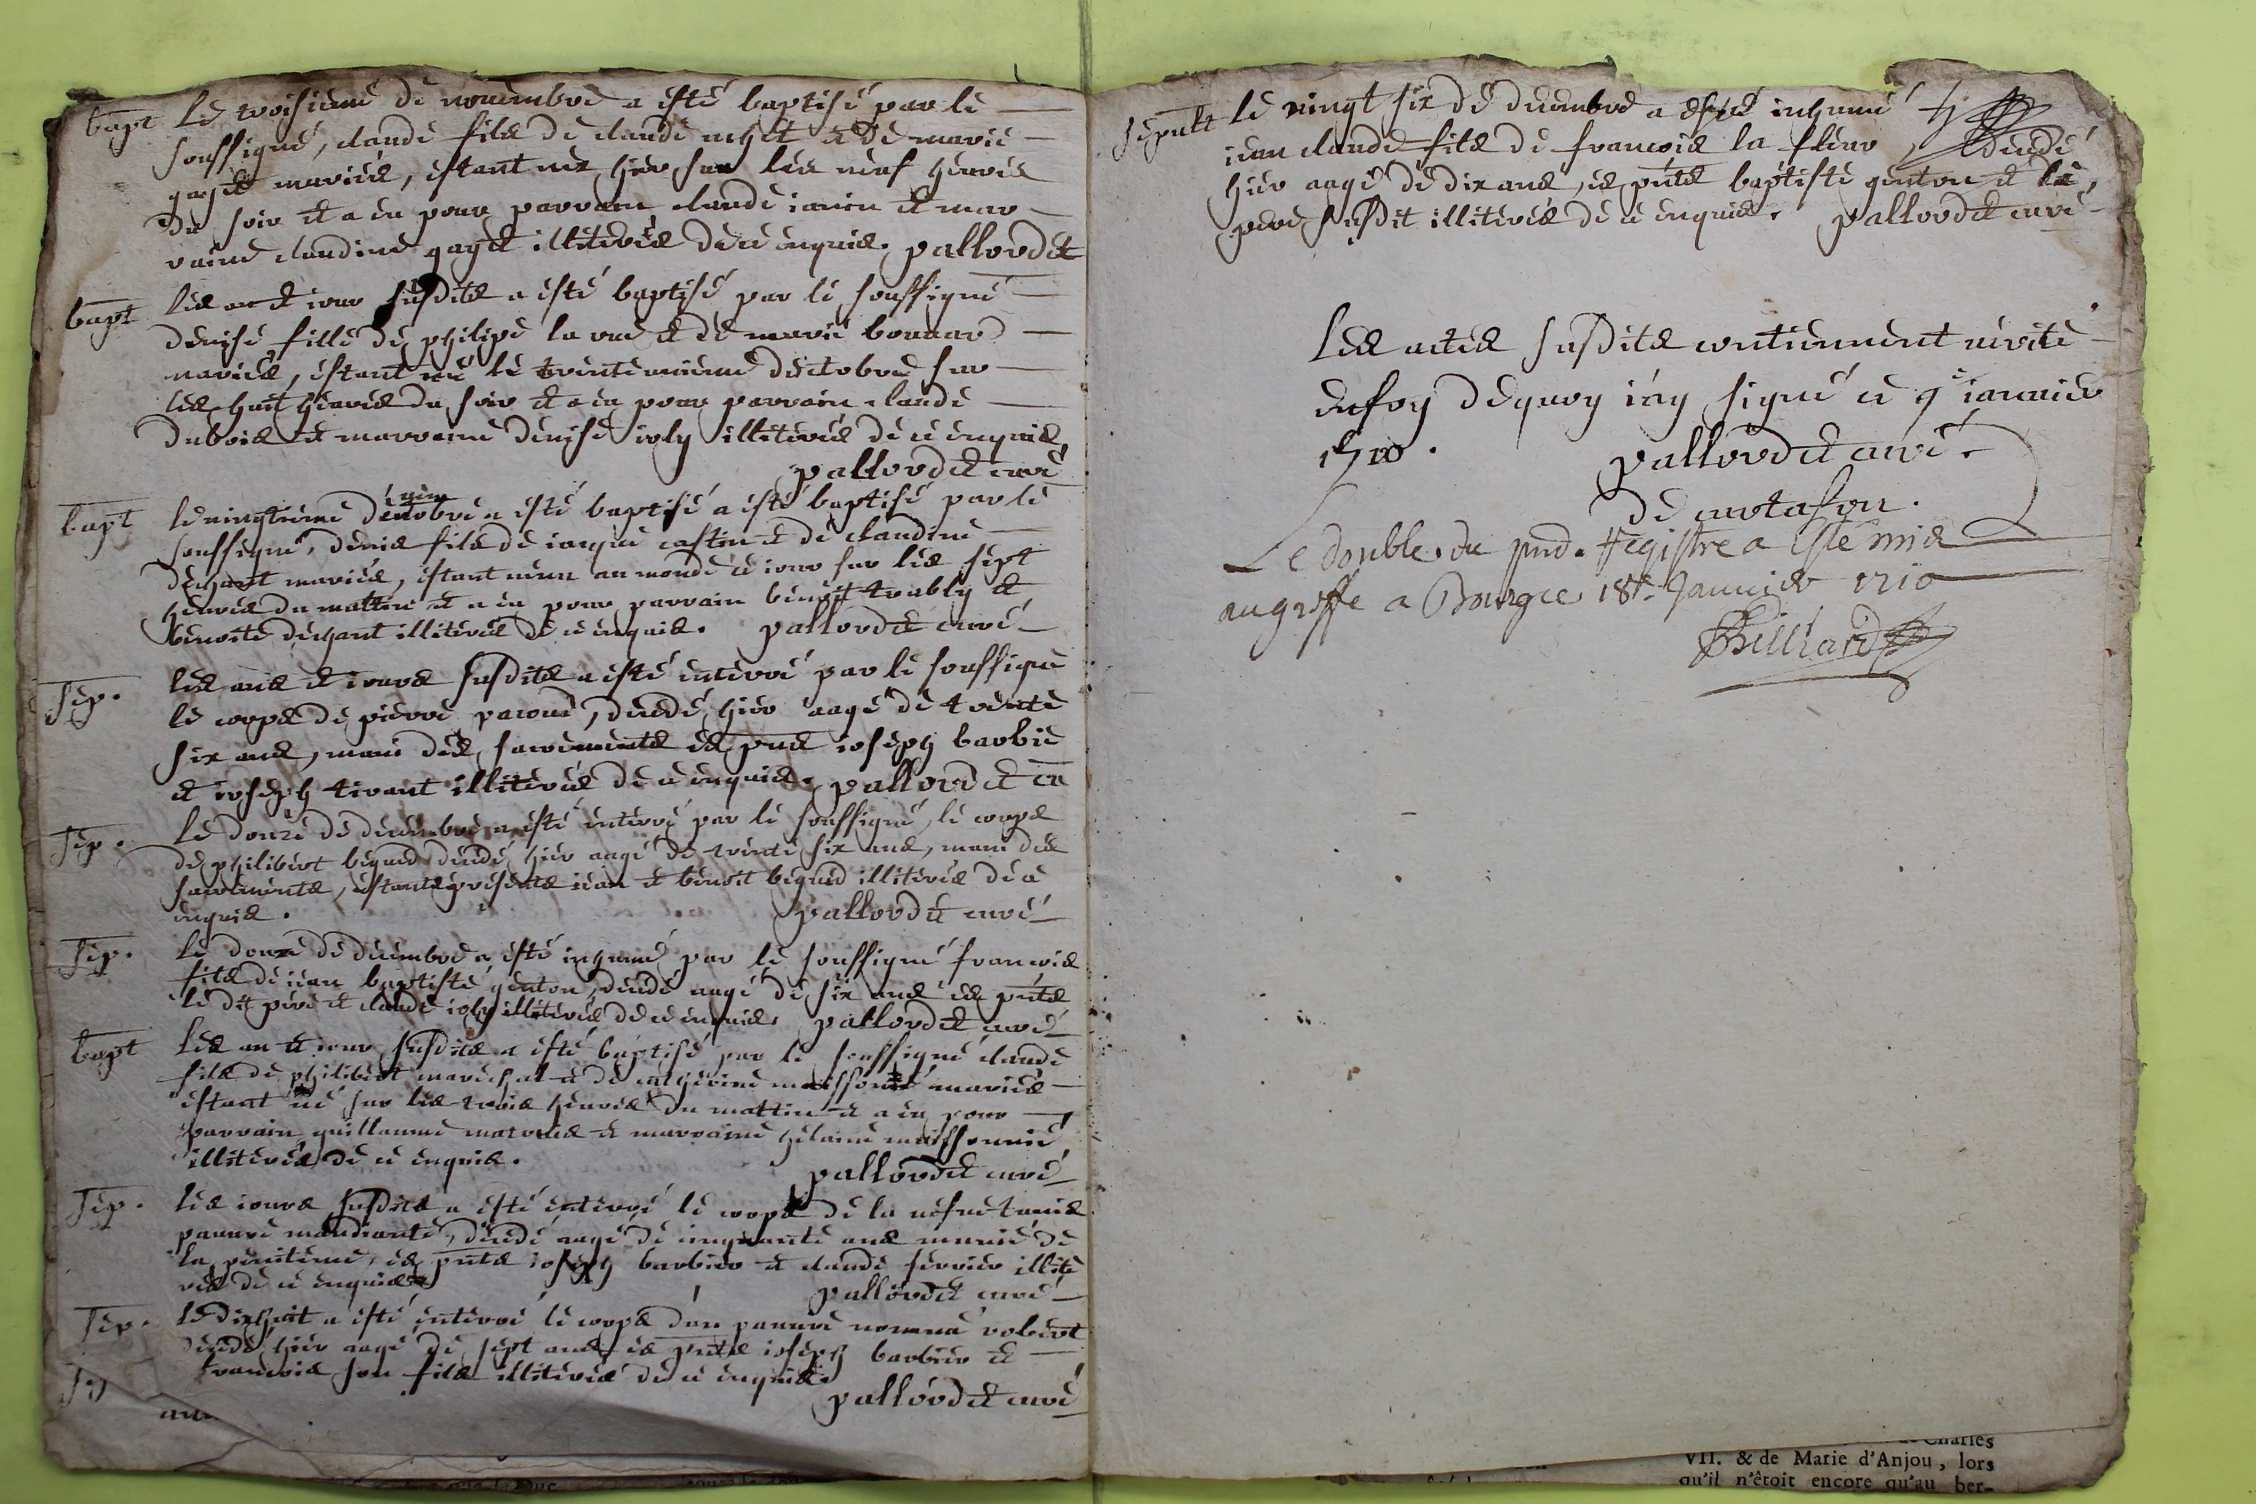 bapt
le troisieme de novembre a esté baptisé par le
soussigné, claude fils de claude et de marie
gaget mariés, estant né hier sur les neuf heures
du soir et a eu pour parrain claude et mar
raine claudine gaget illiterés de ce enquis. pallordet
bapt
les an et iour susdits a esté baptisé par le soussigné
denise fille de philipe la rue et de marie
mariés, estant né le trente unieme d'octobre sur
les huit heures du soir et a eu pour parrain claude
dubois et marraine denise ioly illiterés de ce enquis,
pallordet curé
bapt
le vingtieme a esté baptisé a esté baptisé par le
soussigné, denis fils de iaque et de claudine
dechant mariés, estant venu au monde ce iour sur les sept
heures du mattin et a eu pour parrain benoit trably et
benoite dechant illiterés de ce enquis. pallordet curé
sep.
les ans et iours susdits a esté enterré par le soussigné
le corps de pierre decedé hier aagé de trente
six ans, muni des sacrements es pnts ioseph barbié
et ioseph tivant illiterés de ce enquis. pallordet cu
sep.
le douze de decembre a esté enterré par le soussigné le corps
de philibert decedé hier aagé de trente six ans, muni des
sacrements, estants presents iean et benoit illiterés de ce
enquis. pallordet curé
sep.
le douze de decembre a esté inhumé par le soussigné francois
fils de iean baptiste genton, decedé aagé de six ans es pnts
le dit pere et claude ioly illiterés de ce enquis. pallordet curé
bapt
les an et iour susdits a esté baptisé par le soussigné claude
fils de philibert marechal et de catherine mariés
estant né sur les trois heures du mattin et a eu pour
parrain guillaume et marraine helaine
illiterés de ce enquis.
pallordet curé
sep.
les iours susdits a esté enterré le corps de la
pauvre mandiante, decedé aagé de cinquante ans munie de
la penitence, es pnts ioseph barbier et claude ferrier illité
rés de ce enquis
pallordet curé
sep.
le dixhuit a esté enterré le corps d'un pauvre nommé robert
decedé hier aagé de sept ans, es pnts ioseph barbier et
francois son fils illiterés de ce enquis.
pallordet curé
sepult
le vingt six de decembre a esté inhumé
iean claude fils de francois la fleur, decedé
hier aagé de dix ans, es pnts baptiste genton et le
pere susdit illiterés de ce enquis. pallordet curé
les actes susdits contiennent verité
en foy dequoy i'ay signé ce 9e ianvier
1710.
pallordet curé
de curtafon.
Le double du pnd. Registre a esté mis
au greffe a Bourg ce 18e Janvier 1710
Billiard
de Charles
VII. & de Marie d'Anjou, lors
qu'il n'étoit encore qu'au ber-